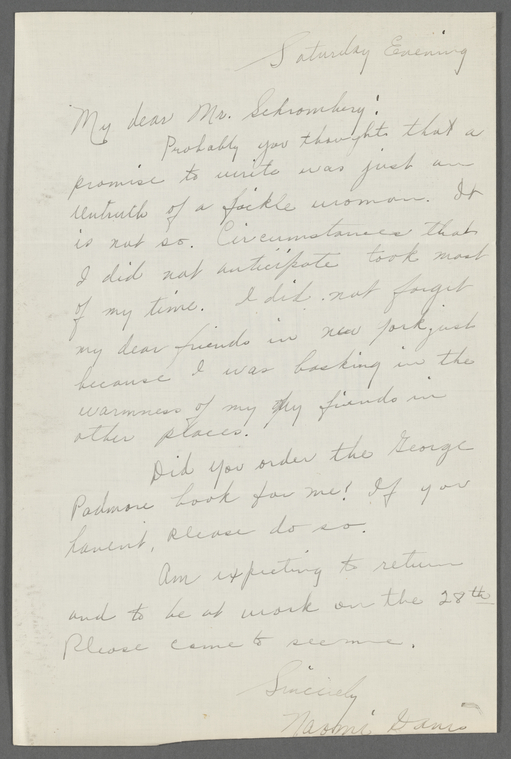 Saturday Evening
My dear Mr. Schromberg:
Probably you thought that a
promise to write was just an
untruth of a fickle woman. It
is not so. Circumstances that
I did not anticipate took most
of my time. I did not forget
my dear friends in new york just
because I was basking in the
warmness of my friends in
other places.
Did you order the George
Padmore book for me? If you
havent, please do so.
Am expecting to return
and to be at work on the 28th
Please come to see me.
Sincerely
Naomi Davis